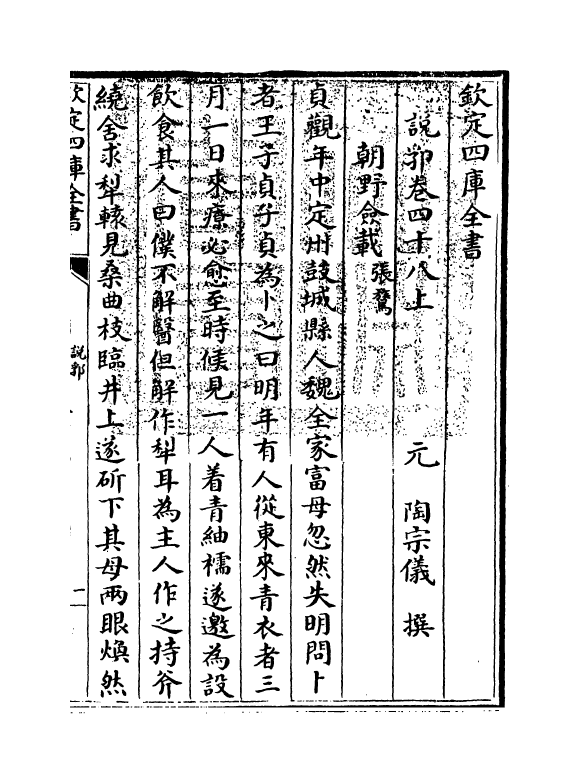 欽定四庫全書
説郛卷四十八上
元 陶宗儀 撰
朝野僉載 張鷟
貞觀年中定州鼓城縣人魏全家富母忽然失明問卜
者王子貞子貞為卜之曰明年有人從東來青衣者三
月一日來療必愈至時候見一人着青紬襦遂邀為設
飲食其人曰僕不解醫但解作犁耳為主人作之持斧
繞舍求犁轅見桑曲枝臨井上遂斫下其母兩眼煥然
欽定四庫全書
説郛
二